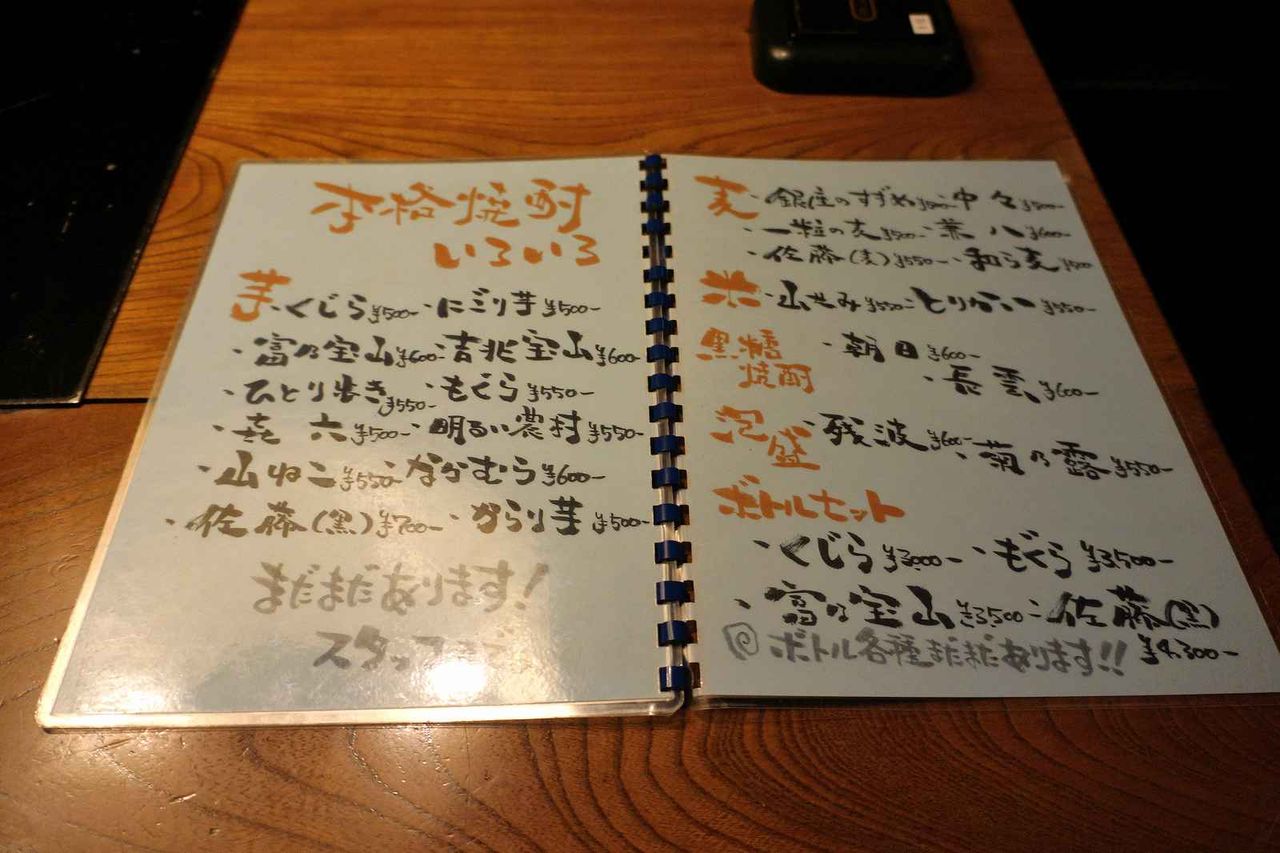 本格焼酎
いろいろ
芋・くじら¥500-・にごり芋¥500-
・富乃宝山¥600-・吉兆宝山¥600-
・ひとり歩き¥550-・もぐら¥550-
・㐂六¥500-・明るい農村¥550-
・山ねこ¥550-・なかむら¥600-
・佐藤(黒)¥700-・からり芋¥500-
まだまだあります!
スタッフ
麦・銀座のすずめ¥500-・中々¥500-
・一粒の麦¥500-・兼八¥600-
・佐藤(麦)¥550-・和ら麦¥500
米・山せみ¥550-・とりかい¥550-
黒糖焼酎・朝日¥600-
・長雲¥600-
泡盛・残波¥600-・菊乃露¥550-
ボトルセット
・くじら¥3,000-・もぐら¥3,500-
・富乃宝山¥3,500-・佐藤(黒)¥4,300-
ボトル各種まだまだあります!!